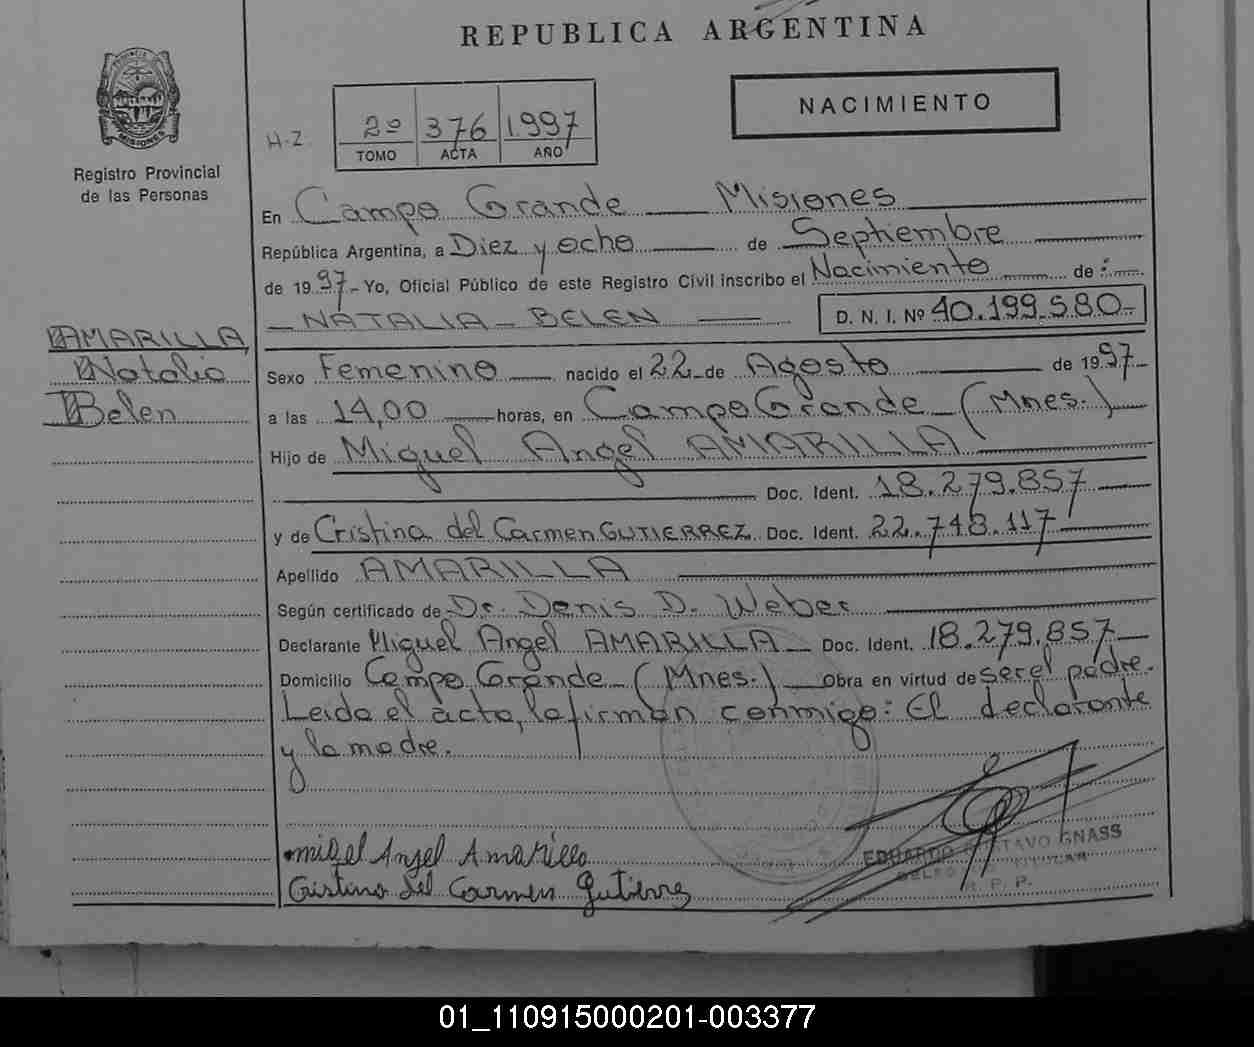 REPUBLICA ARGENTINA
PROVINCIA DE
MISIONES
Registro Provincial
de las Personas
H-Z
2º 376 1997
TOMO ACTA AÑO
NACIMIENTO
En Campo Grande Misiones
República Argentina, a Diez y ocho de Septiembre
de 1997 Yo, Oficial Público de este Registro Civil inscribo el Nacimiento de:
NATALIA - BELEN D. N. I. Nº 40.199.580-
AMARILLA,
Natalia
Belen
Sexo Femenino nacido el 22 de Agosto de 1997
a las 14,00 horas, en Campo Grande (Mnes.)
Hijo de Miguel Angel AMARILLA
Doc. Ident. 18.279.857
y de Cristina del Carmen GUTIERREZ Doc. Ident. 22.748.117
Apellido AMARILLA
Según certificado de Dr. Denis D. Weber
Declarante Miguel Angel AMARILLA Doc. Ident. 18.279.857
Domicilio Campo Grande (Mnes.) Obra en virtud de ser el padre.
Leida el acta, la firman conmigo: El declarante
y la madre.
migel Angel Amarilla
Cristina del Carmen Gutierrez
EDUARDO GUSTAVO GNASS
R. P. P.
01_110915000201-003377